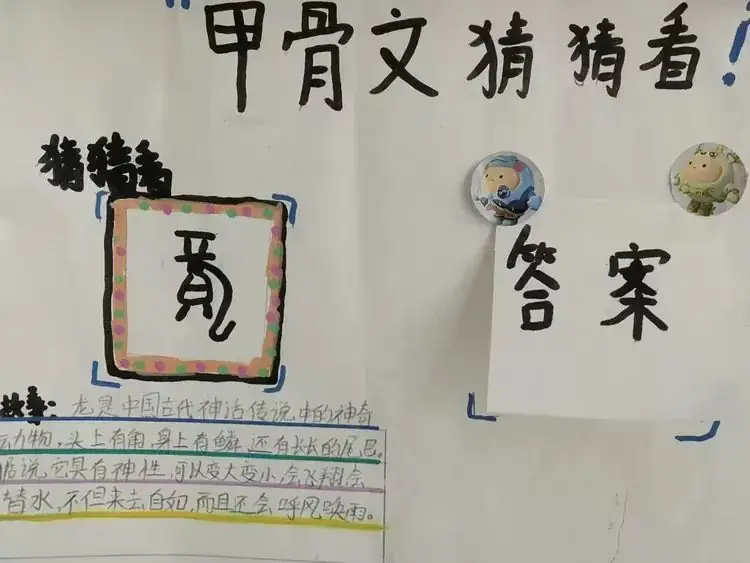 甲骨文猜猜看!
猜猜看
答案
故事:龙是中国古代神话传说中的神奇
动物,头上有角,身上有鳞,还有长长的尾巴。
据说,它具有神性,可以变大变小,会飞翔,会
替水,不但来去自如,而且还会呼风唤雨。